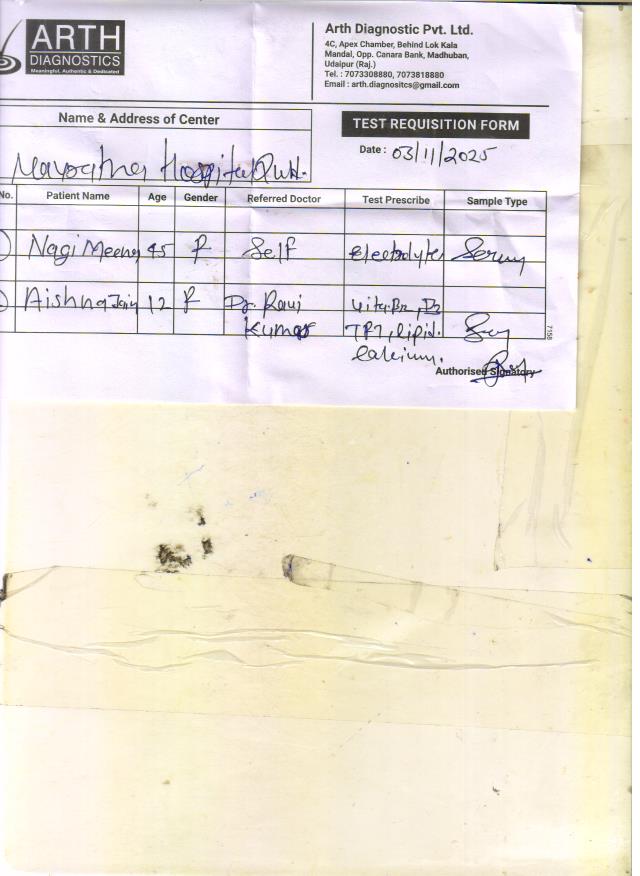 ARTH
DIAGNOSTICS
Meaningful, Authentic & Dedicated
Arth Diagnostic Pvt. Ltd.
4C, Apex Chamber, Behind Lok Kala
Mandal, Opp. Canara Bank, Madhuban,
Udaipur (Raj.)
Tel. : 7073308880, 7073818880
Email : arth.diagnositcs@gmail.com
Name & Address of Center
TEST REQUISITION FORM
Date : 03/11/2025
Hospital
No. Patient Name Age Gender Referred Doctor Test Prescribe Sample Type
Nagi Meena 45 F Self Electrolytes Serum
Aishna Jain 12 F Dr. Ravi Vit B12, D3
Kumar TFT, lipid.
Calcium.
7158
Authorised Signatory